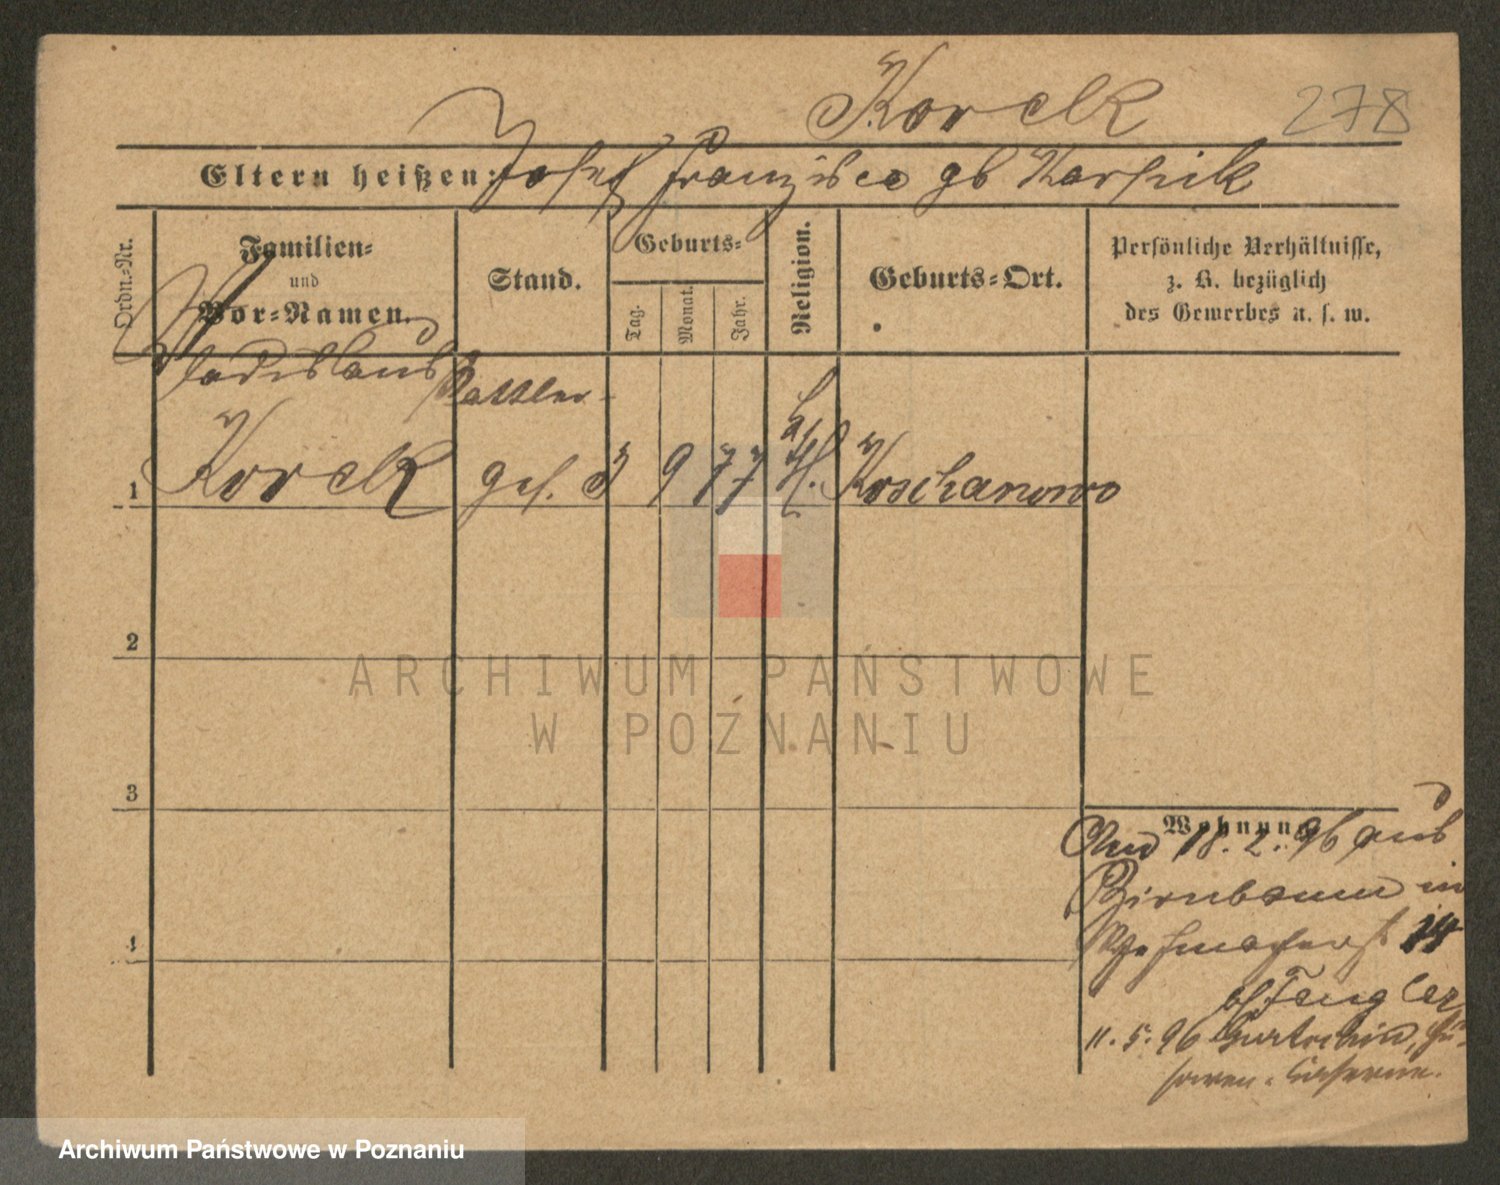 Korck 278
Eltern heißen: Josef Franziska gb Karpik
Ordn.-Nr.
Familien-
und
Vor-Namen.
Stand.
Geburts-
Tag.
Monat.
Jahr.
Religion.
Geburts-Ort.
Persönliche Verhältnisse,
z. B. bezüglich
des Gewerbes u. s. w.
Wladislaus Sattler
1 Korck gef. 3 9 77 Koschanowo
2
3
4
Wohnung
18. 2. 96 aus
Birnbaum in
14
b/ Tengler
11. 5. 96
ARCHIWUM PAŃSTWOWE
W POZNANIU
Archiwum Państwowe w Poznaniu